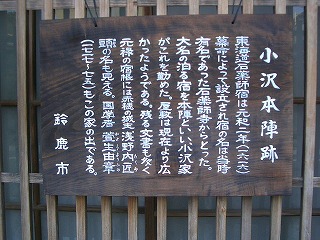 小沢本陣跡
東海道石薬師宿は元和二年（一六一六）
幕命によって設立され宿の名は当時
有名であった石薬師寺からとった。
大名の泊る宿を本陣といい小沢家
がこれを勤めた屋敷は現在より広
かったようである。残る文書も多く
元禄の宿帳には赤穂の城主浅野内匠
頭の名も見える。国学者萱生由章
（一七一七〜七五）もこの家の出である。
鈴鹿市